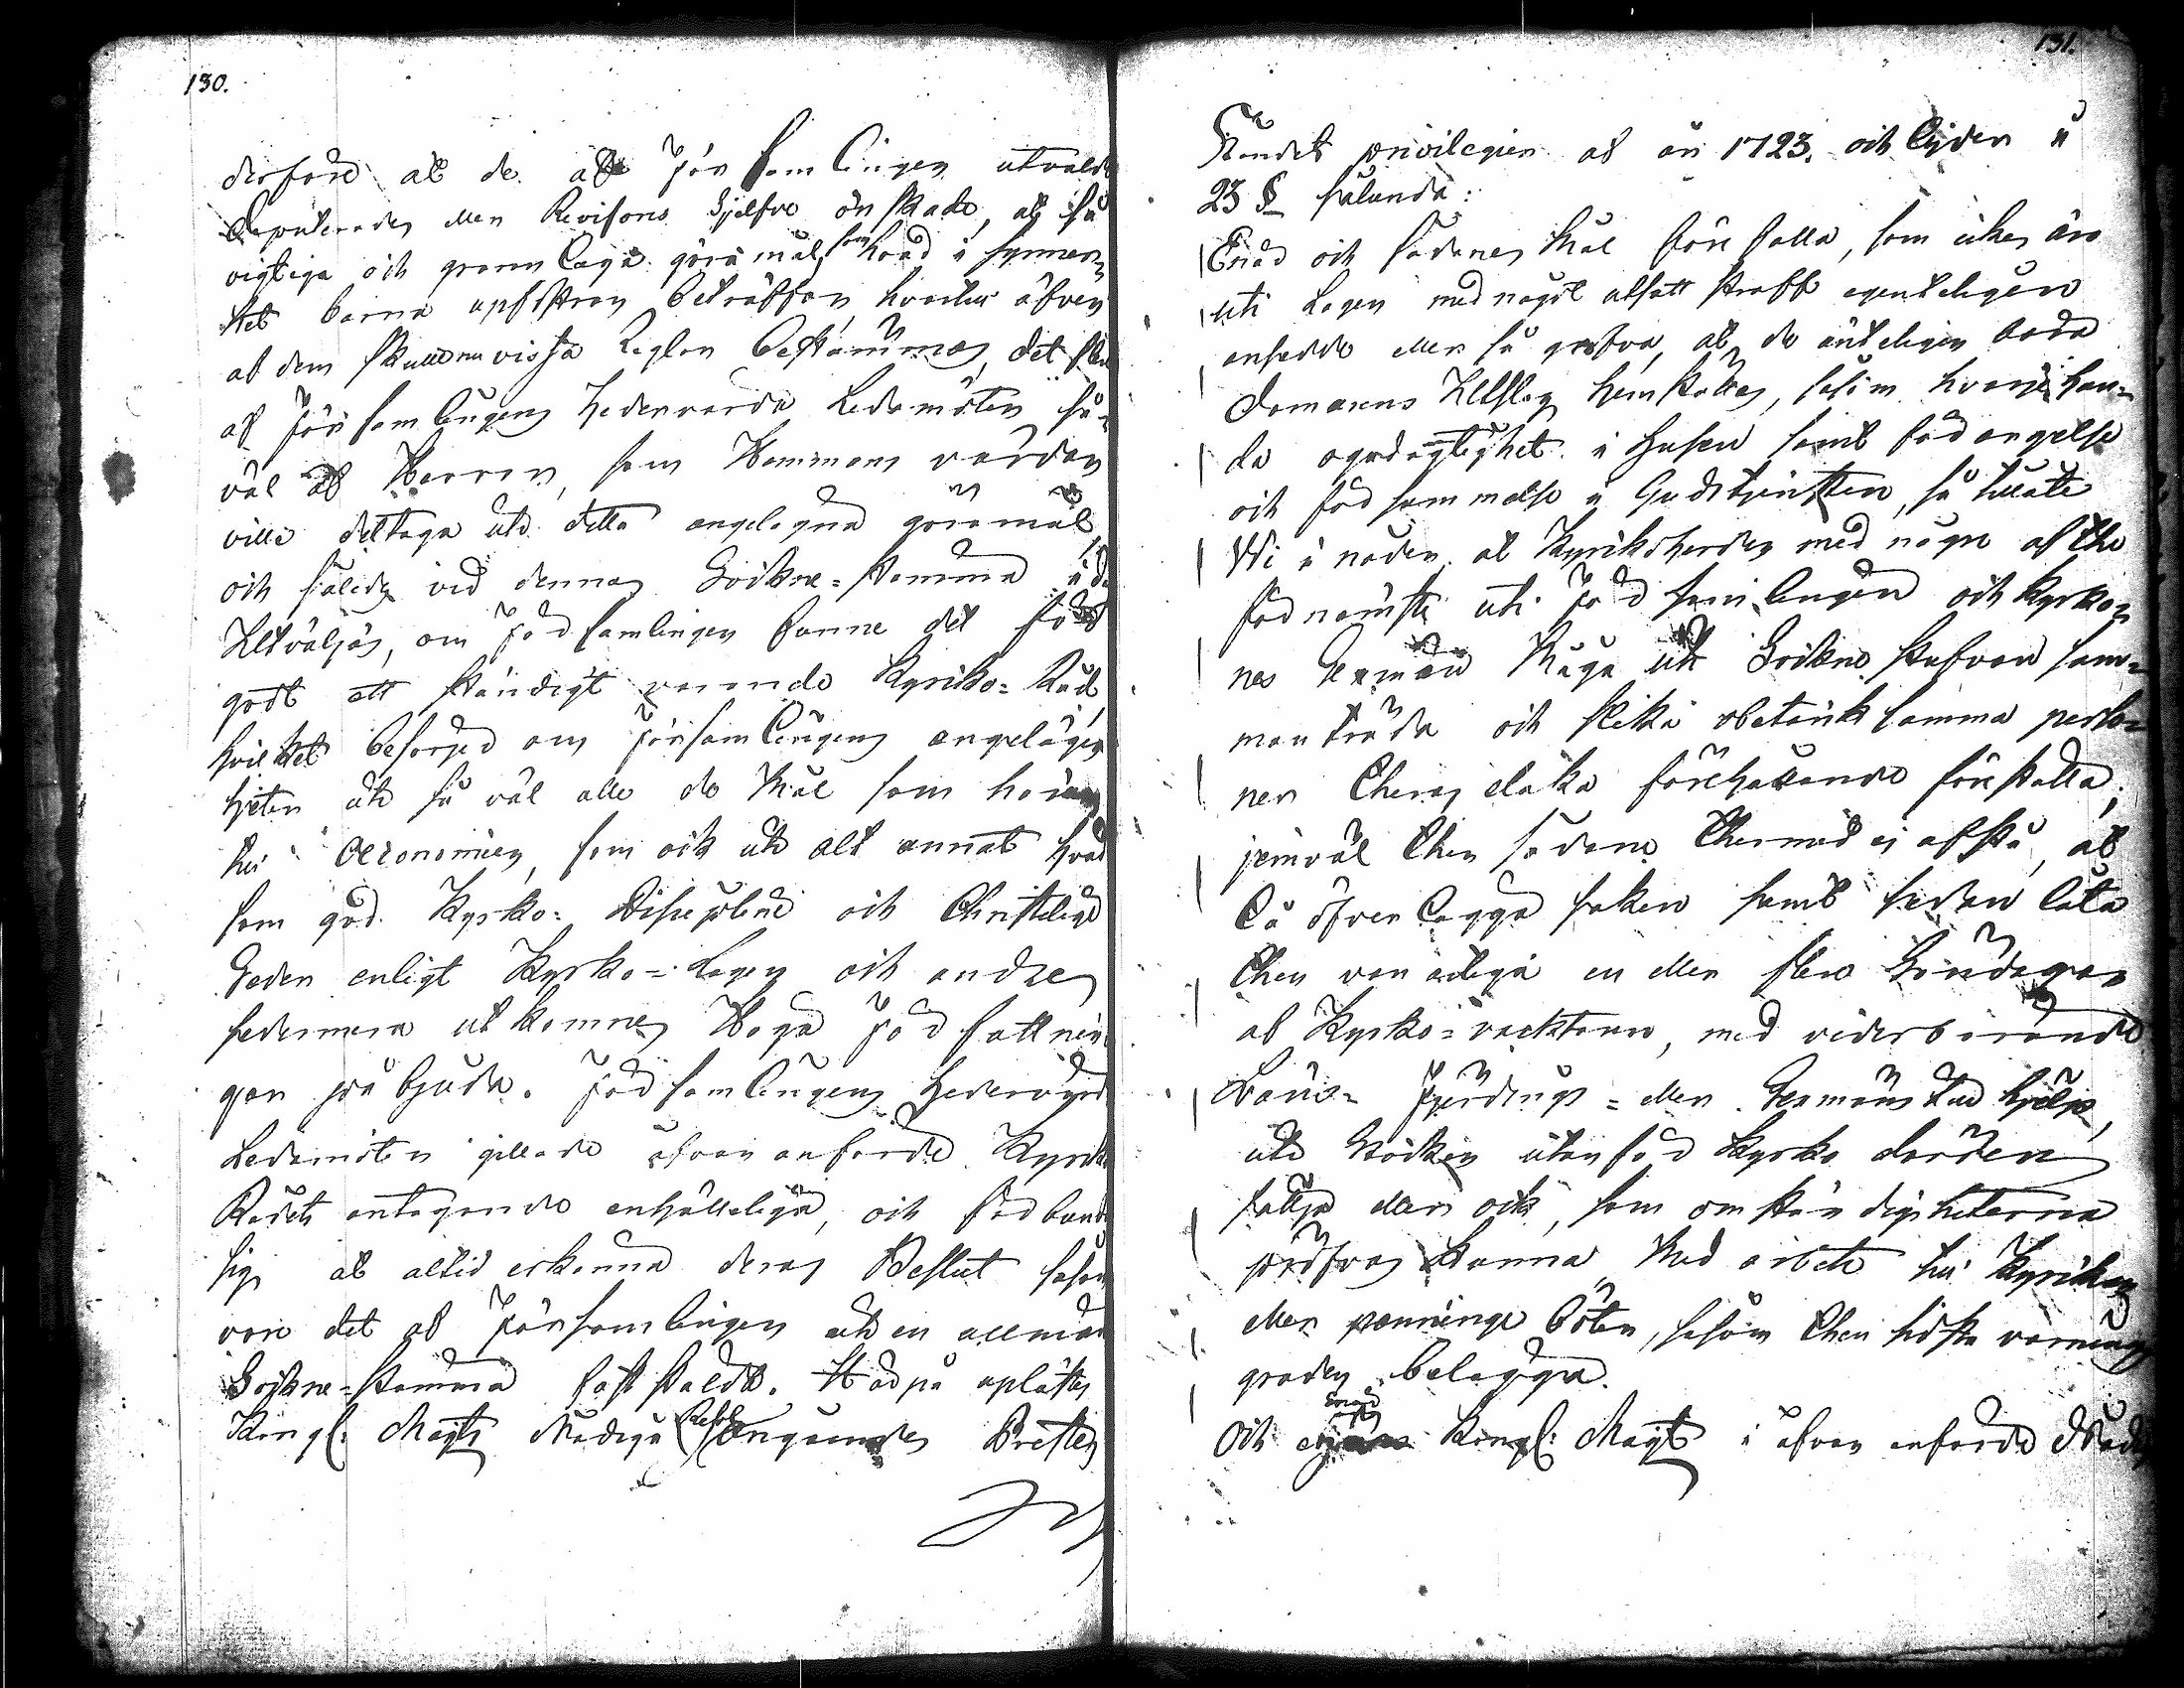 130.
derföre at de af Församlingen utvalde
Deputerades eller Revisorns Sjelfve önskade, at så
vigtiga och grannlaga göromål, som hvad i synner¬
het barna upfostran beträffar, hvartil äfven
af dem skulle nu vissa Reglor bestämmas, det flere
af Församlingens Hedervärda Ledamöter så¬
väl af Herrar, som Hemmans
ville deltaga uti detta angelägna göromål,
och således vid denna Sockne=stämma
Utväljas, om Församlingen funne det för
godt ett ständigt varande Kyrko=Råd,
hvilket besörjer om Församlingens angelägen
heter uti så väl alle de Mål som höra
till Oeconomien, som ock uti alt annat hvad
som god Kyrko=Discipline och Christelige
Seder enligt Kyrko=Lagen och andre
sedermera utkomne Höga Författnin
gar påbjuda. Församlingens Hedervärde
Ledamöter gillade ofvananförde Kyrko
Rådets antagande enhälleligen, och förbundo
sig at altid erkänna deras Beslut såsom
vore det af Församlingen uti en allmän
Sockne=stämma fastställdt. Härpå uplästes
Kongl: Maj:ts Nådiga Resol: angående Preste
131.
Ståndets privilegier af år 1723. och lyder
23 § sålunda:
och sådanes Mål förefalla, som icke äro
uti Lagen med något utsatt straff egenteligen
ansedde eller så grofve, at de änteligen böra
Domarens Utslag hemställas, såsom hvarje han¬
da ogudagtighet i Husen samt förargelse
och försummelse i Gudstjensten, så tillåte
Wi i nåder, at Kyrkoherden med några af the
förnämste uti Församlingen och Kyrko¬
nes måga uti Sockne stufvan sam¬
manträda och slika obetänksamma perso¬
ner theras elaka förehållande föreställa;
jemväl then sådane thermed ej afstå, at
öfverlägga saken samt sedan låta
then vanartiga en eller flere Söndagar
af Kyrko=väcktaren, med vederbörande
Läns= Fjerdings= eller Sexmäns hjelp,
uti Stocken utanför Kyrko dörren
sättja eller ock, som omständigheterna
pröfvas kunna med arbete til Kyrkan
eller penninge böter, såsom then sidsta varnings
graden belägga.
Och Kongl: Maj:t i ofvan anförde Nåd